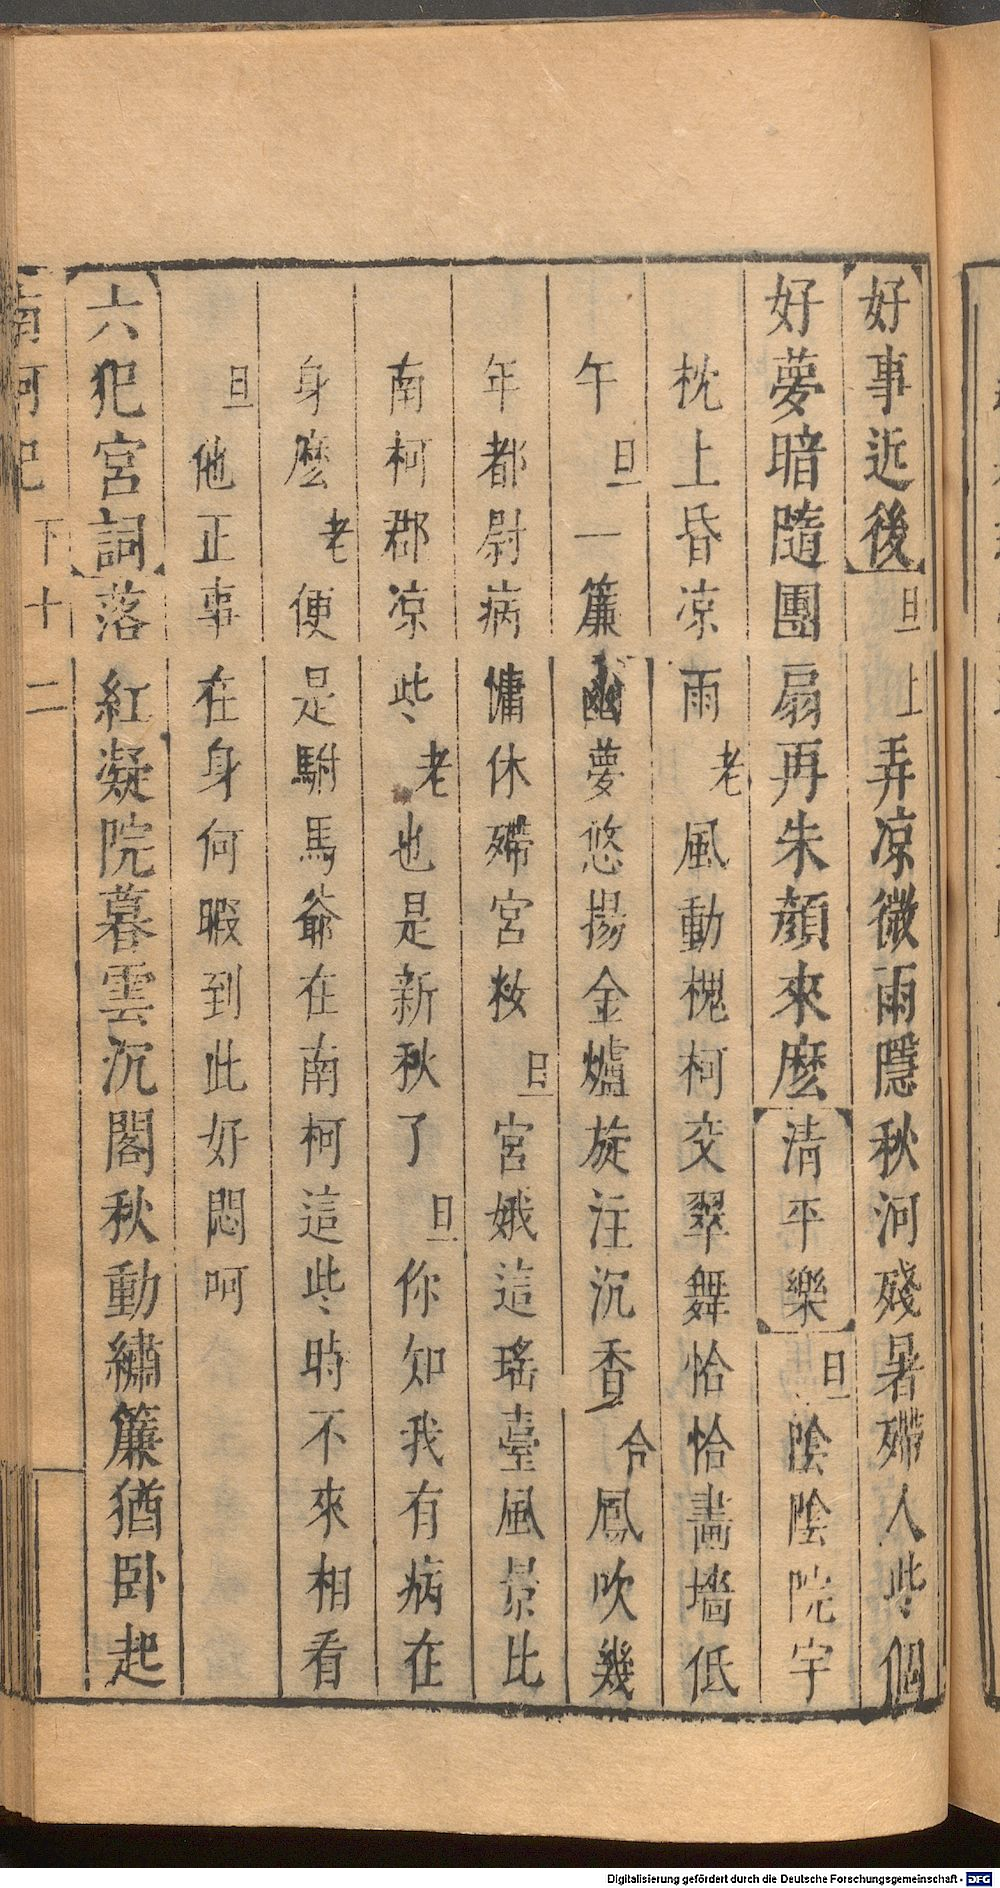 好事近後旦上弄凉微雨隱秋河殘暑殢人些個
好夢暗隨團扇再朱顏來麽清平樂旦陰陰院宇
枕上昏凉雨老風動槐柯交翠舞恰恰畵墻低
午旦一簾幽夢悠揚金爐旋注沉香合鳳吹幾
年都尉病慵休殢宮妝旦宮娥這瑤臺風景比
南柯郡凉些老也是新秋了旦你知我有病在
身麽老便是駙馬爺在南柯這些時不來相看
旦他正事在身何暇到此好悶呵
六犯宮詞落紅凝院暮雲沉閣秋動繡簾猶卧起
南柯記 下 十二
Digitalisierung gefördert durch die Deutsche Forschungsgemeinschaft - DFG